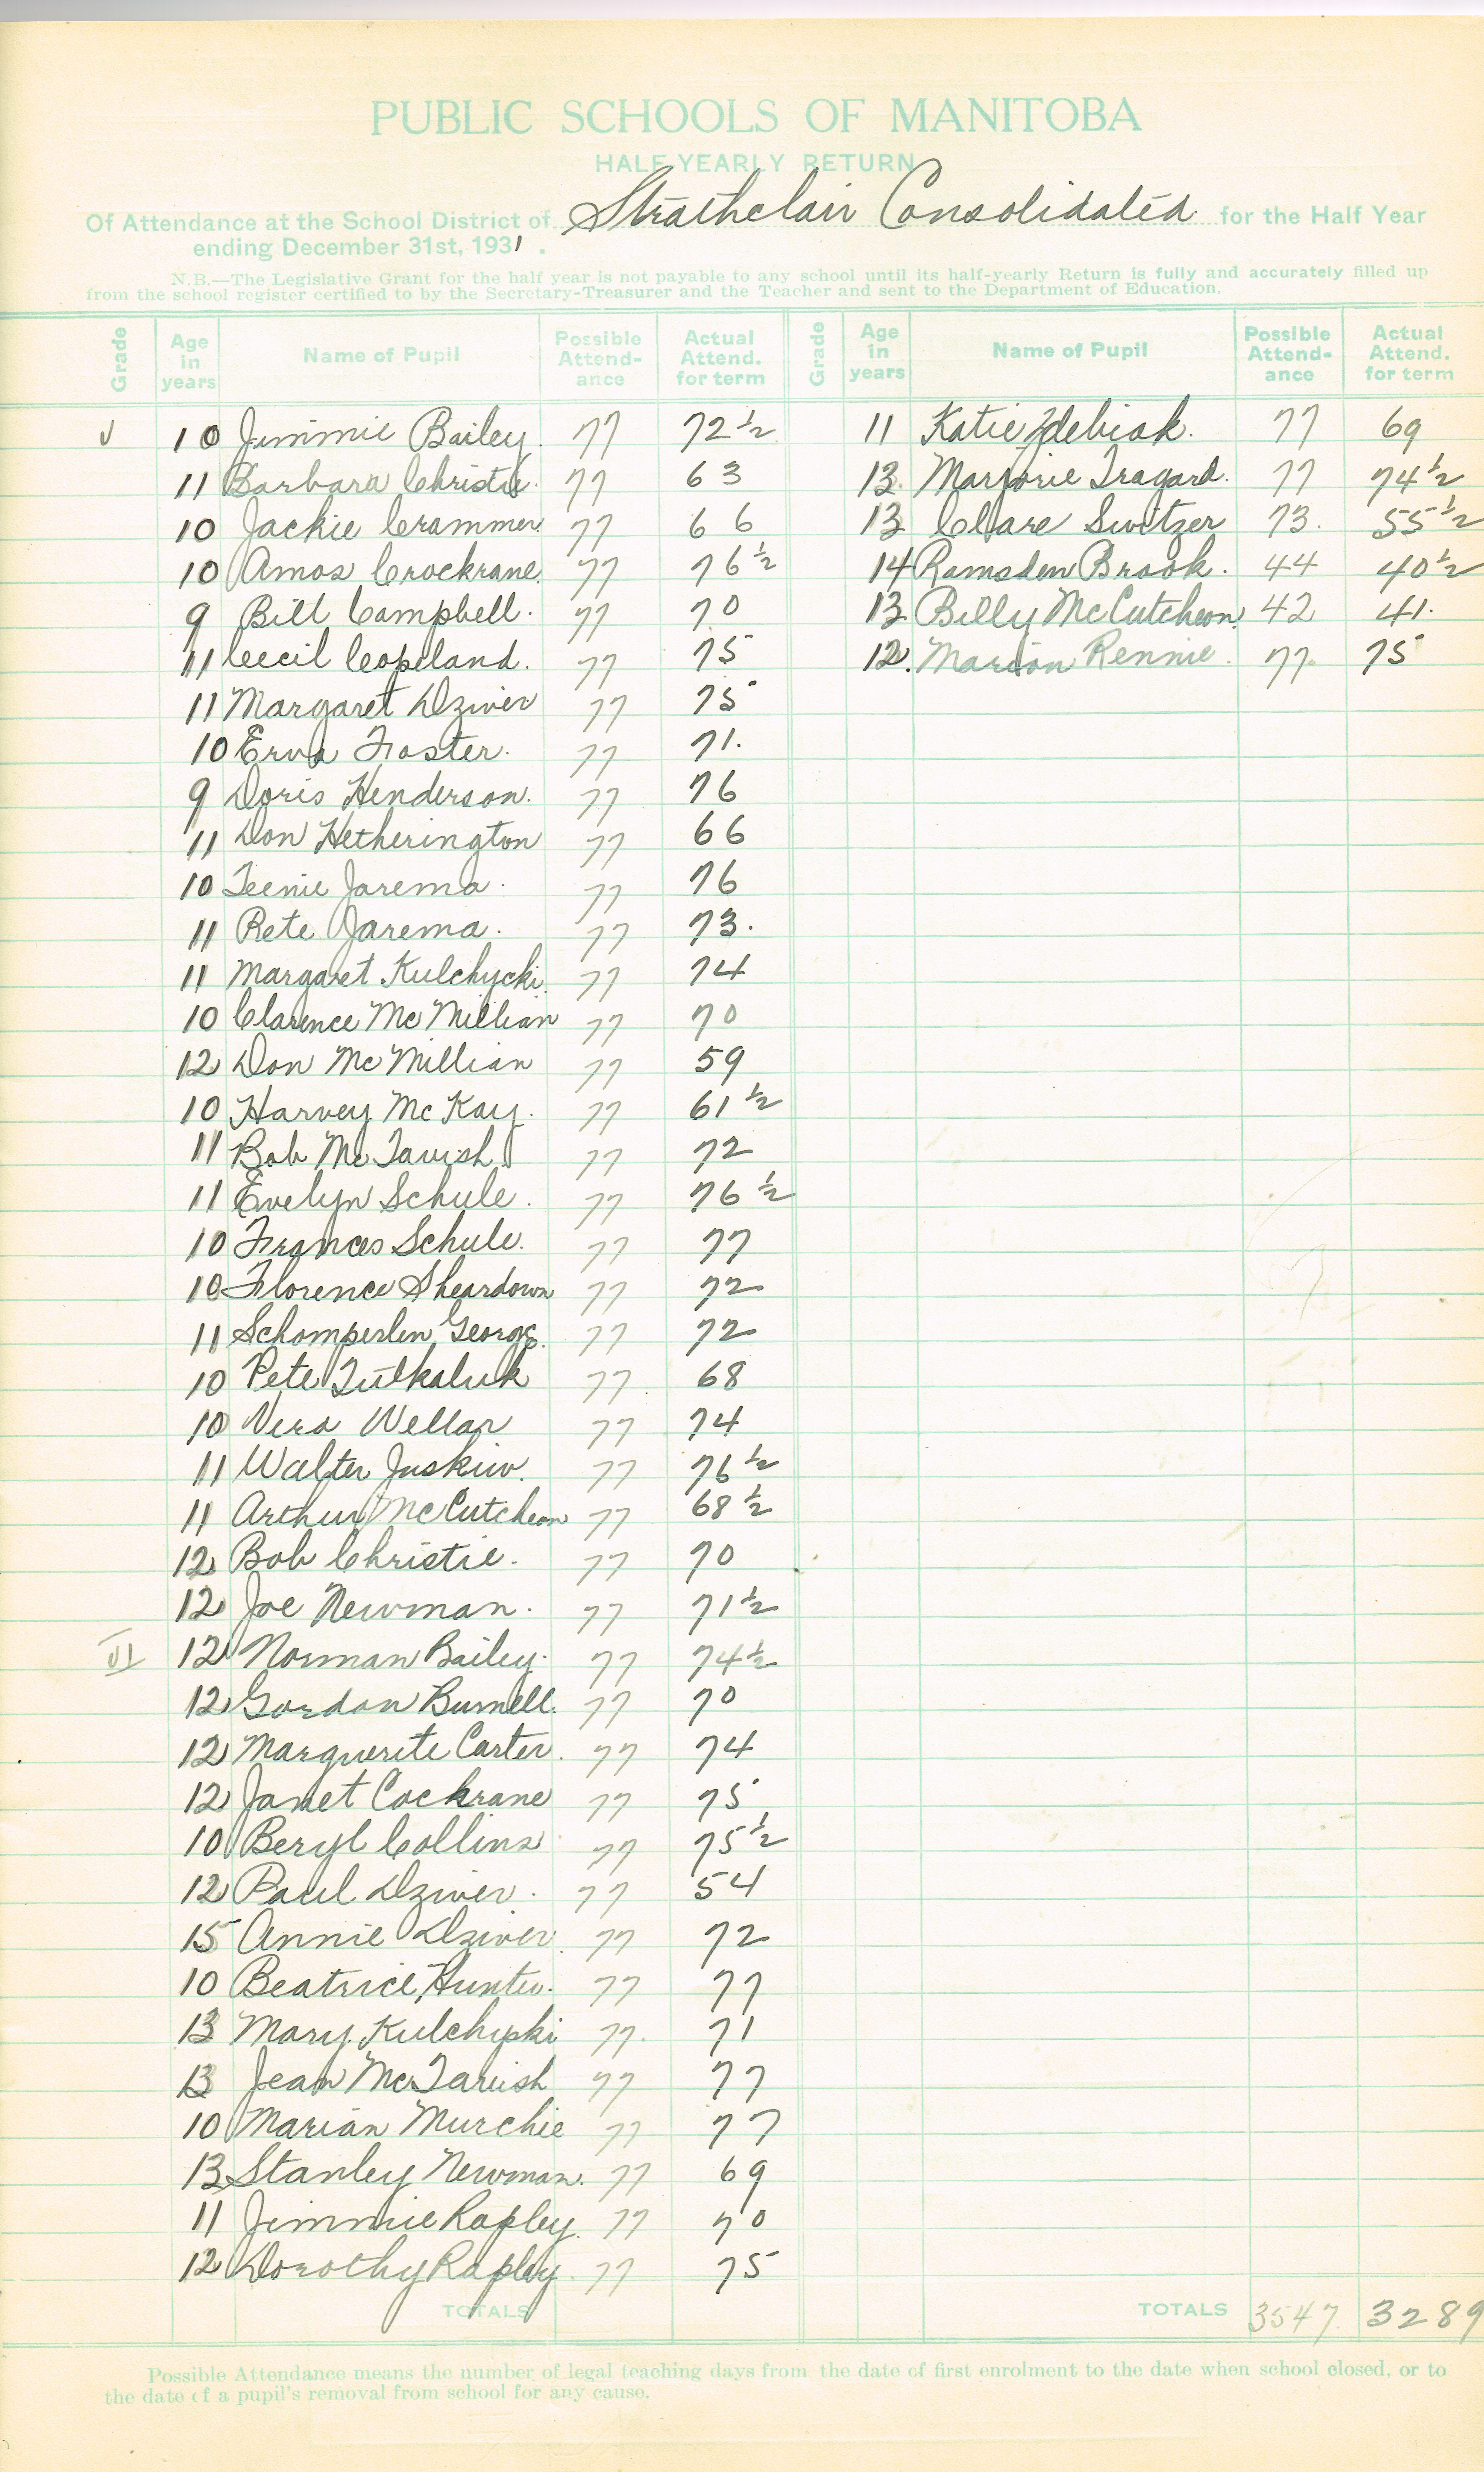 PUBLIC SCHOOLS OF MANITOBA
HALF YEARLY RETURN
Of Attendance at the School District of Strathclair Consolidated for the Half Year
ending December 31st, 1931.
N.B.—The Legislative Grant for the half year is not payable to any school until its half-yearly Return is fully and accurately filled up
from the school register certified to by the Secretary-Treasurer and the Teacher and sent to the Department of Education.
Grade Age in years Name of Pupil Possible Attend-ance Actual Attend. for term
V 10 Jimmie Bailey. 77 72½
11 Barbara Christie. 77 63
10 Jackie Crammer 77 66
10 Amos Crockrane. 77 76½
9 Bill Campbell. 77 70
11 Cecil Copeland. 77 75
11 Margaret Dziver 77 75
10 Erva Foster. 77 71.
9 Doris Henderson. 77 76
11 Don Hetherington 77 66
10 Teenie Jarema. 77 76
11 Pete Jarema. 77 73.
11 Margaret Kulchycki 77 74
10 Clarence McMillian 77 70
12 Don McMillian 77 59
10 Harvey McKay. 77 61½
11 Bob McTavish 77 72
11 Evelyn Schule. 77 76½
10 Frances Schule. 77 77
10 Florence Sheardown 77 72
11 Schomperlen, George. 77 72
10 Pete Tutkaluk 77 68
10 Vera Wellar 77 74
11 Walter Juskiw. 77 76½
11 Arthur McCutcheon 77 68½
12 Bob Christie. 77 70
12 Joe Newman. 77 71½
VI 12 Norman Bailey. 77 74½
12 Gordon Burnell. 77 70
12 Marguerite Carter. 77 74
12 Janet Cockrane 77 75
10 Beryl Collins 77 75½
12 Paul Dziver. 77 54
15 Annie Dziver. 77 72
10 Beatrice Hunter. 77 77
13 Mary Kulchyski 77. 71
13 Jean McTavish 77 77
10 Marian Murchie 77 77
13 Stanley Newman. 77 69
11 Jimmie Rapley. 77 70
12 Dorothy Rapley. 77 75
TOTALS
Grade Age in years Name of Pupil Possible Attend-ance Actual Attend. for term
11 Katie Zdebiak. 77 69
13. Marjorie Tragard. 77 74½
13 Clare Switzer 73. 55½
14 Ramsden Brook. 44 40½
13 Billy McCutcheon. 42 41.
12. Marion Rennie. 77. 75
TOTALS 3547 3289
Possible Attendance means the number of legal teaching days from the date of first enrolment to the date when school closed, or to
the date of a pupil's removal from school for any cause.